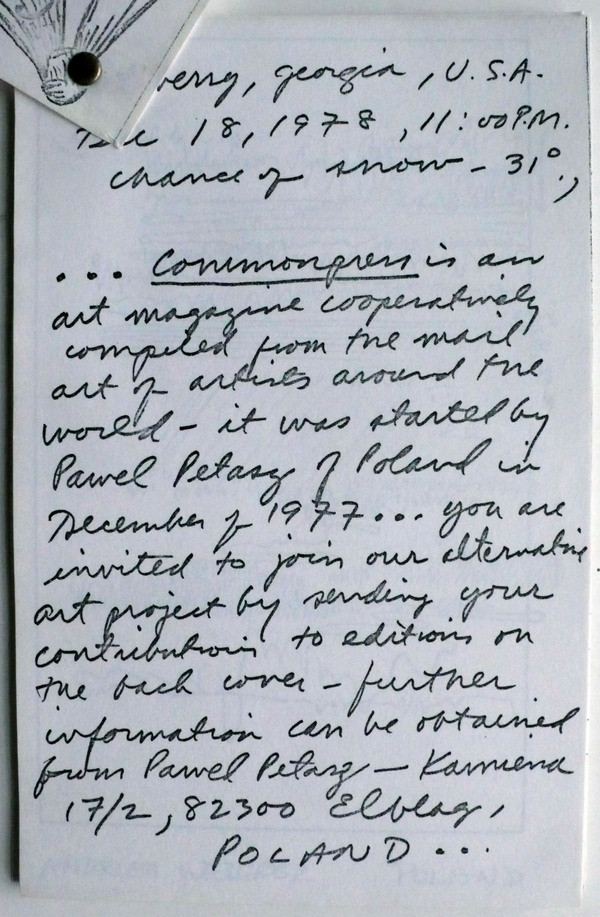 erry, georgia, U.S.A.
Dec 18, 1978, 11:00 P.M.
chance of snow - 31°,
... Commonpress is an
art magazine cooperatively
compiled from the mail
art of artists around the
world - it was started by
Pawel Petasz of Poland in
December of 1977... you are
invited to join our alternative
art project by sending your
contributions to editions on
the back cover - further
information can be obtained
from Pawel Petasz - Kamiena
17/2, 82300 Elblag,
POLAND...